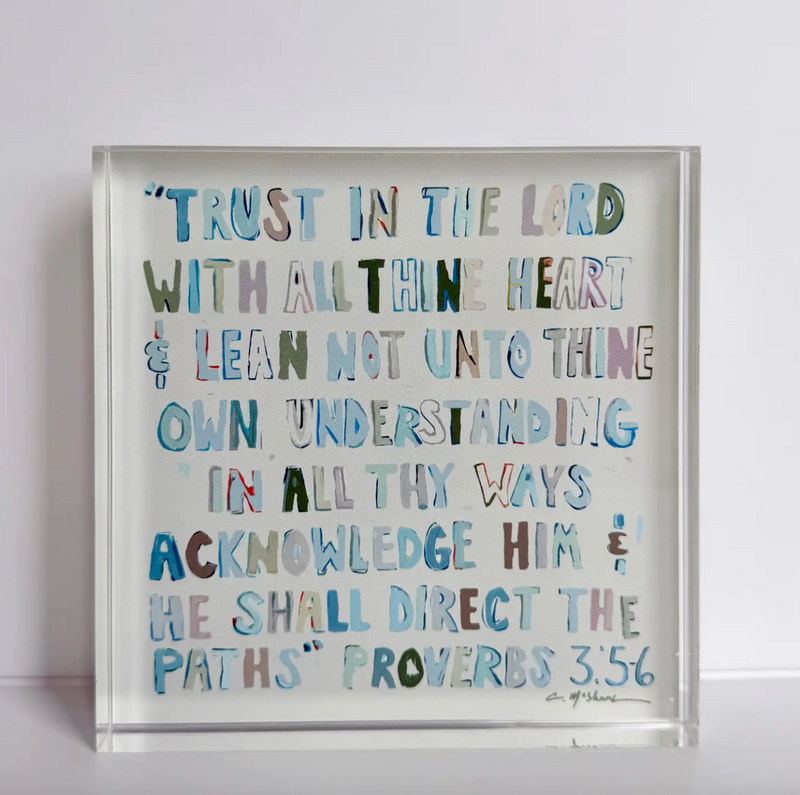 "TRUST IN THE LORD
WITH ALL THINE HEART
& LEAN NOT UNTO THINE
OWN UNDERSTANDING
IN ALL THY WAYS
ACKNOWLEDGE HIM &
HE SHALL DIRECT THE
PATHS" PROVERBS 3:56
C. McShane